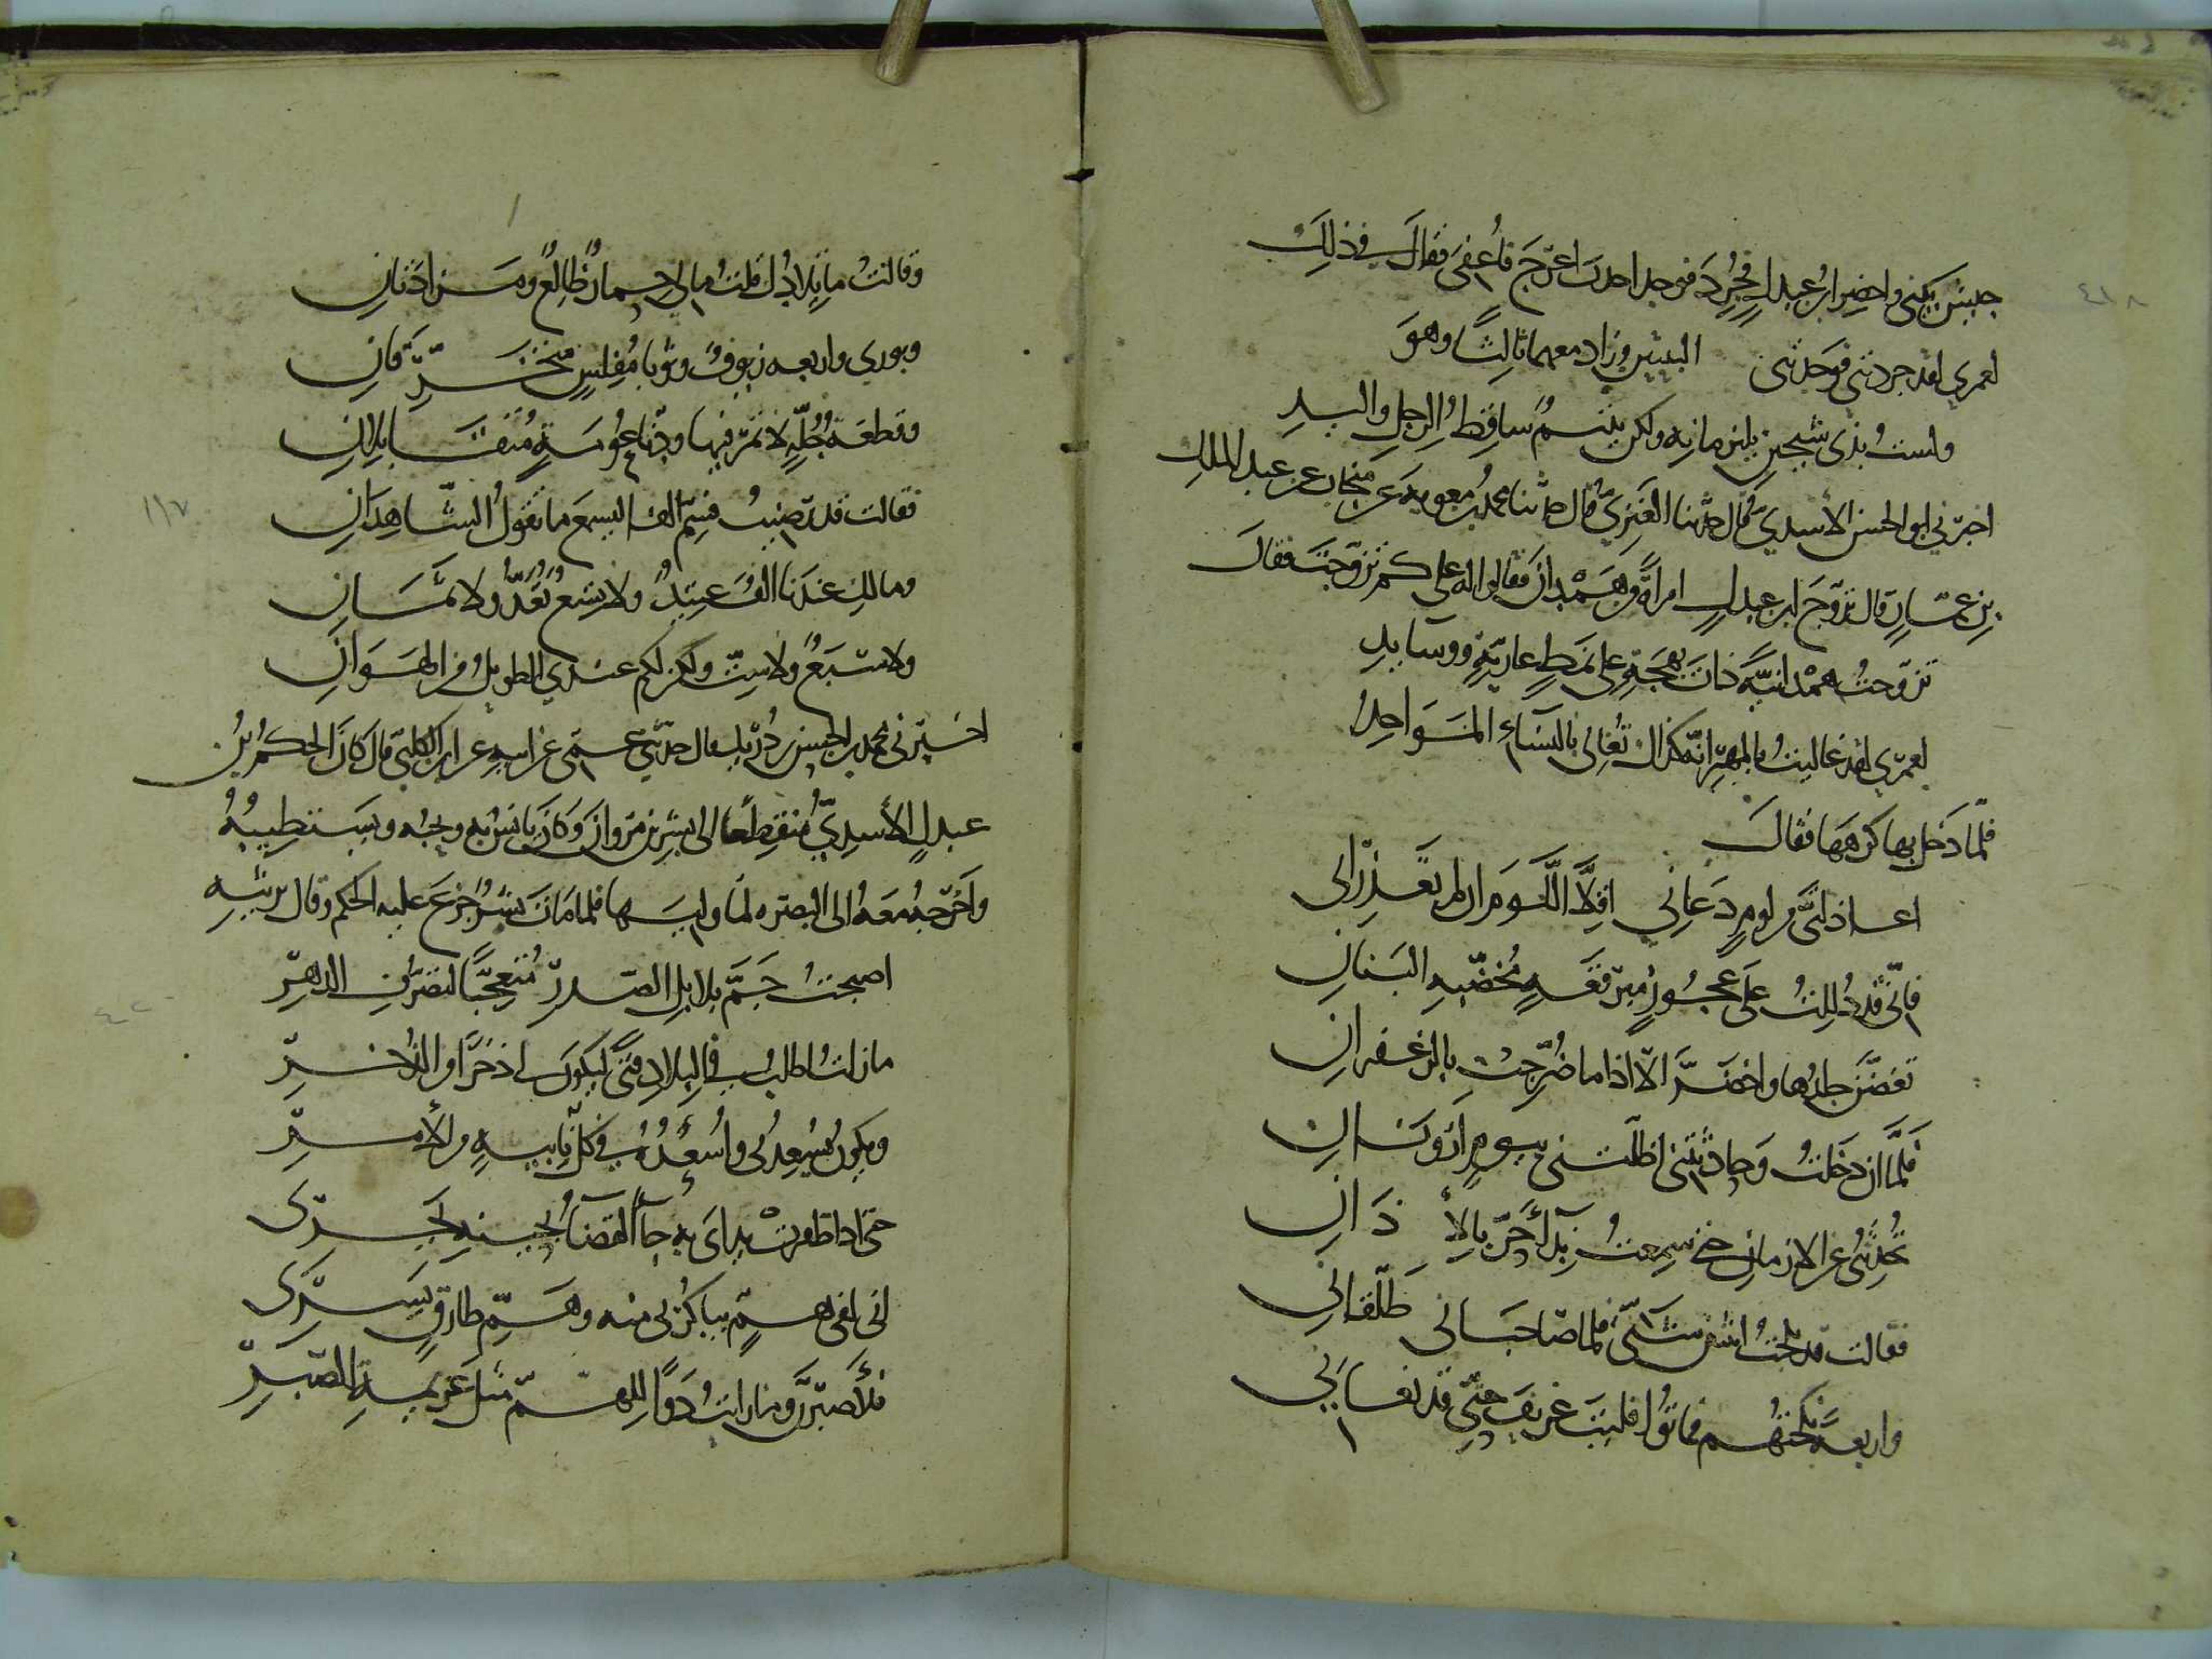 جيش يكنى واحضر ابن عبدل فجُرّد فوجد احدب اعرج فأعفى فقال في ذلك
لعمري لقد جردتني فوجدتني البيتين وزاد معهما ثالثًا وهو
ولست بذي شيخين يلتزمانه ولكن يتيمٌ ساقطُ الرجل واليد
اخبرني ابو الحسن الأسدي قال حدثنا العنزي قال حدثنا محمد بن معويه عن منجاب عن عبد الملك
بن عفان قال تزوج ابن عبدل امرأة من همدان فقالوا له على كم تزوجت فقال
تزوجت همدانيةً ذات بهجة على نمط عادية ووسايد
لعمري لقد غاليت بالمهر انه كذاك تغالى بالنساء المواجد
فلمّا دخل بها كرهها فقال
اعاذلتيّ من لوم دعاني اقلّا اللوم ان لم تعذراني
فانّي قد دُللت على عجوز مبرقعة مخضّبة البنان
تغضّن جلدها واخضرّ الّا اذا ما ضُرّجت بالزعفران
فلمّا ان دخلت وحادثتني اظلتني بيوم ارونان
تحدثني عن الازمان حتى سمعت نداء حرّ بالأذان
فقالت قد نكحت اثنين شتّى فلما صاحباني طلّقاني
واربعة نكحتهم فماتوا فليت عريف حيّ قد نعاني
وقالت ما تلادك قلت مالي حمارٌ ظالعٌ ومزادتان
وبوري واربعه زيوف وثوبا مفلس متخرّقان
وقطعة جلّة لا تمر فيها ودنّا عومة متقابلان
فقالت قد رضيت فسمّ الفا ليسمع ما تقول الشاهدان
ومالك عندنا الف عتيد ولا تسع تعد ولا ثمان
ولا سبع ولا ستّ ولكن لكم عندي الطويل من الهوان
اخبرني محمد بن الحسن بن دريد قال حدثني عمّي عن ابيه عن ابن الكلبي قال كان الحكم بن
عبدل الأسدي منقطعا الى بشر بن مروان وكان يأنس به ويحبه ويستطيبه
واخرجه معه الى البصره لما وليها فلما مات بشر جزع عليه الحكم وقال يرثيه
اصبحت جمّ بلابل الصدر متعجبًا لتصرف الدهر
مازلت اطلب في البلاد فتىً ليكون لي ذخرًا من الذخر
ويكون يسعدني وأسعده في كل نايبة من الأمر
حتى اذا ظفرت يداي به جاء القضاء بحينه يجري
اني لفي همّ يباكرني منه وهمّ طارق يسري
فلأصبرنّ وما رايت دوا للهمّ مثل عزيمة الصبر